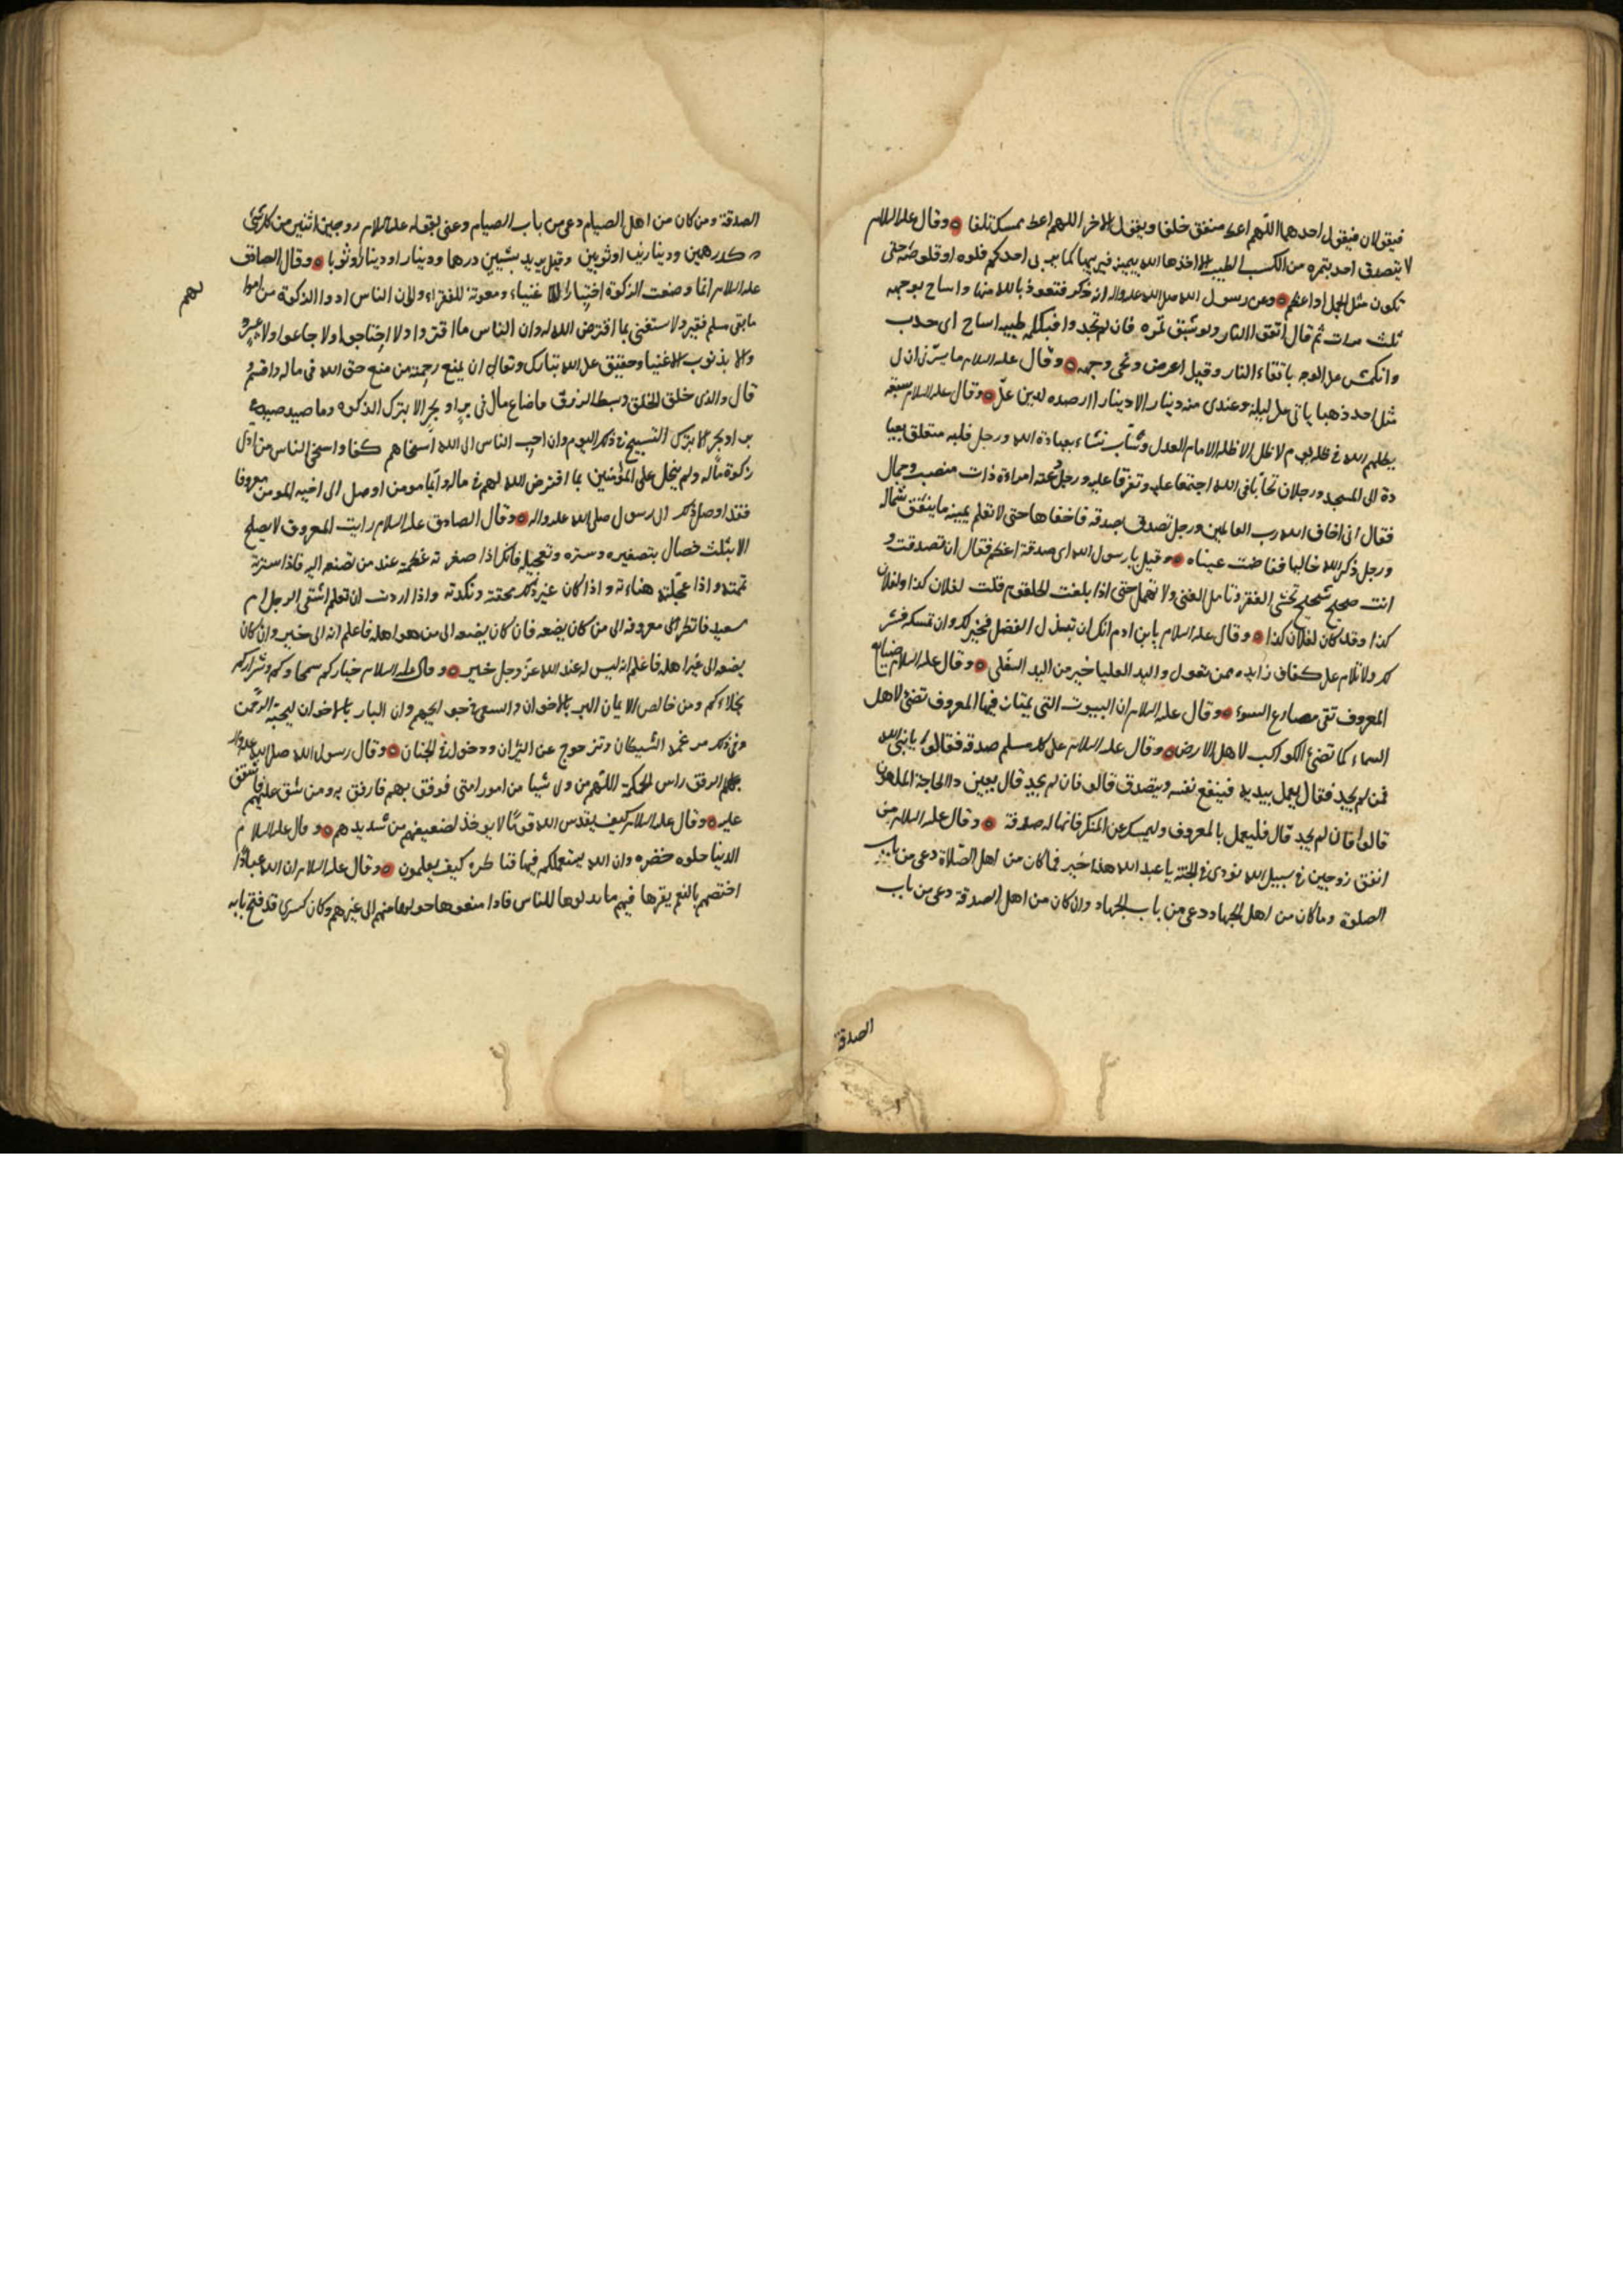 فيقولان فيقول احدهما اللهم اعط منفق خلفا ويقول الاخر اللهم اعط ممسك تلفا ه وقال عليه السلام
لا يتصدق احد بتمره من الكسب الطيب الا اخذها الله بيمينه فيربيها كما يربى احدكم فلوه او قلوصه حتى
تكون مثل الجبل او اعظم ه وعن رسول الله صلى الله عليه واله انه ذكر فتعوذ بالله منها واساح بوجهه
ثلث مرات ثم قال اتقوا النار ولو بشق تمره فان لم تجدوا فبكلمه طيبه اساح اى حدب
وانكمش على الوجه باتقاء النار وقيل اعرض ونحى وجهه ه وقال عليه السلام ما يسرنى ان لى
مثل احد ذهبا ياتى على ليلة وعندى منه دينار الا دينار ارصده لدين على ه وقال عليه السلام سبعه
يظلهم الله فى ظله يوم لا ظل الا ظله الامام العدل وشاب نشاء بعبادة الله ورجل قلبه متعلق بعبا
دة الى المسجد ورجلان تحابا فى الله اجتمعا عليه وتفرقا عليه ورجل دعته امراءة ذات منصب وجمال
فقال انى اخاف الله رب العالمين ورجل تصدق بصدقه فاخفاها حتى لا تعلم يمينه ما ينفق شماله
ورجل ذكر الله خاليا ففاضت عيناه ه وقيل يا رسول الله اى صدقة اعظم فقال ان تصدقت و
انت صحيح شحيح تخشى الفقر وتامل الغنى ولا تمهل حتى اذا بلغت الحلقوم قلت لفلان كذا ولفلان
كذا وقد كان لفلان كذا ه وقال عليه السلام يابن ادم انك ان تبذل الفضل فخير لك وان تمسكه فشر
لك ولا تلام على كفاف زابده بمن تعول واليد العليا خير من اليد السفلى ه وقال عليه السلام صنايع
المعروف تقى مصارع السوء ه وقال عليه السلام ان البيوت التى يمتات فيها المعروف تضئ لاهل
السماء كما تضئ الكواكب لاهل الارض ه وقال عليه السلام على كل مسلم صدقه فقالوا يا نبى الله
فمن لم يجد فقال يعمل بيديه فينفع نفسه ويتصدق قالو فان لم يجد قال يعين ذا الحاجة الملهوف
قالوا فان لم يجد قال فليعمل بالمعروف وليمسك عن المنكر فانها له صدقة ه وقال عليه السلام من
انفق زوجين فى سبيل الله نودى فى الجنة يا عبد الله هذا خير فما كان من اهل الصلاة دعى من باب
الصلوة وما كان من اهل الجهاد دعى من باب الجهاد وان كان من اهل الصدقة دعى من باب
الصدقة
الصدقة ومن كان من اهل الصيام دعى من باب الصيام وعنى بقوله عليه السلام زوجين اثنين من كل شئ
كدرهمين ودينارين او ثوبين وقيل يريد بشيئين درهما ودينار او دينارا وثوبا ه وقال الصادق
عليه السلام انما وضعت الزكوة اختبارا للاغنياء ومعونة للفقراء ولو ان الناس ادوا الزكوة من اموا
لهم
ما بقى مسلم فقير ولا ستغنى بما افترض الله له وان الناس ما افتروا ولا احتاجوا ولا جاعوا ولا عروا
والا بذنوب الاغنيا وحقيق على الله تبارك وتعالى ان يمنع رحمته من منع حق الله فى ماله واقسم و
قال والذى خلق الخلق وبسط الرزق ما ضاع مال فى بر او بحر الا بترك الزكوه وما صيد صيد فى
بر او بحر الا بترك التسبيح فى ذلك اليوم وان احب الناس الى الله اسخاهم كفا واسخى الناس من ادى
زكوة ماله ولم يبخل على المؤمنين بما افترض الله لهم فى ماله وايما مومن اوصل الى اخيه المومن معروفا
فقد اوصل ذلك الى رسول صلى الله عليه واله ه وقال الصادق عليه السلام رايت المعروف لا يصلح
الا بثلث خصال بتصغيره وستره وتعجيله فانك اذا صغرته عظمته عند من تصنعه اليه فاذا سترته
تممته واذا عجلته هناءته واذا كان غير ذلك محقته ونكدته واذا اردت ان تعلم اشقى الرجل ام
سعيد فانظر الى معروفه الى من كان يضعه فان كان يضعه الى من هو اهله فاعلم انه الى خير وان كان
يضعه الى غير اهله فاعلم انه ليس له عند الله عز وجل خير ه وقال عليه السلام خياركم سمحاوكم وشراركم
بخلاءكم ومن خالص الايمان البر بالاخوان والسعى فى حوايجهم وان البار بالاخوان ليحبه الرحمن
وفى ذلك مرغمة الشيطان وتزحوج عن النيران ودخول فى الجنان ه وقال رسول الله صلى الله عليه واله
الرفق راس الحكمة اللهم من ولى شيا من امور امتى فوفق بهم فارفق به ومن شق عليهم فاشفق
عليه ه وقال عليه السلام كيف يقدس الله قوما لا يوخذ لضعيفهم من شديدهم ه وقال عليه السلام
الدينا حلوه خضره وان الله يستعملكم فيها فناظره كيف يعلمون ه وقال عليه السلام ان الله عبادا
اختصهم بالنعم يقرها فيهم ما بدلوها للناس فاذا منعوها حولها منهم الى غيرهم وكان كسرى قد فتح بابه